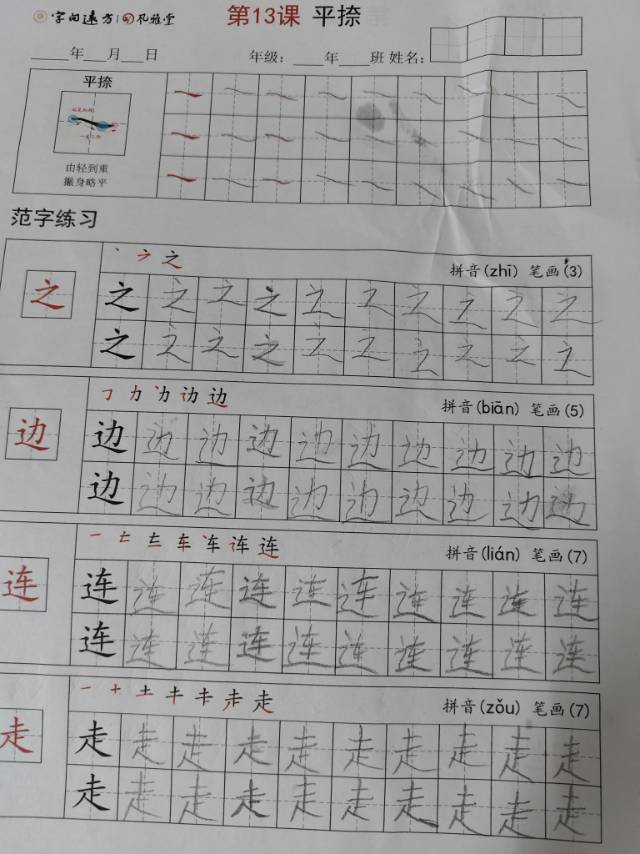 字的远方 孔雅堂 第13课 平捺
____年___月___日 年级：____年____班 姓名：
平捺
由轻到重
撇身略平
范字练习
之 拼音(zhī) 笔画(3)
之 之 之 之 之 之 之 之 之 之 之
之 之 之 之 之 之 之 之 之 之
边 拼音(biān) 笔画(5)
边 边 边 边 边 边 边 边 边 边 边
边 边 边 边 边 边 边 边 边 边
车 连 连 拼音(lián) 笔画(7)
连 连 连 连 连 连 连 连 连 连 连
连 连 连 连 连 连 连 连 连 连
走 走 拼音(zǒu) 笔画(7)
走 走 走 走 走 走 走 走 走 走 走
走 走 走 走 走 走 走 走 走 走